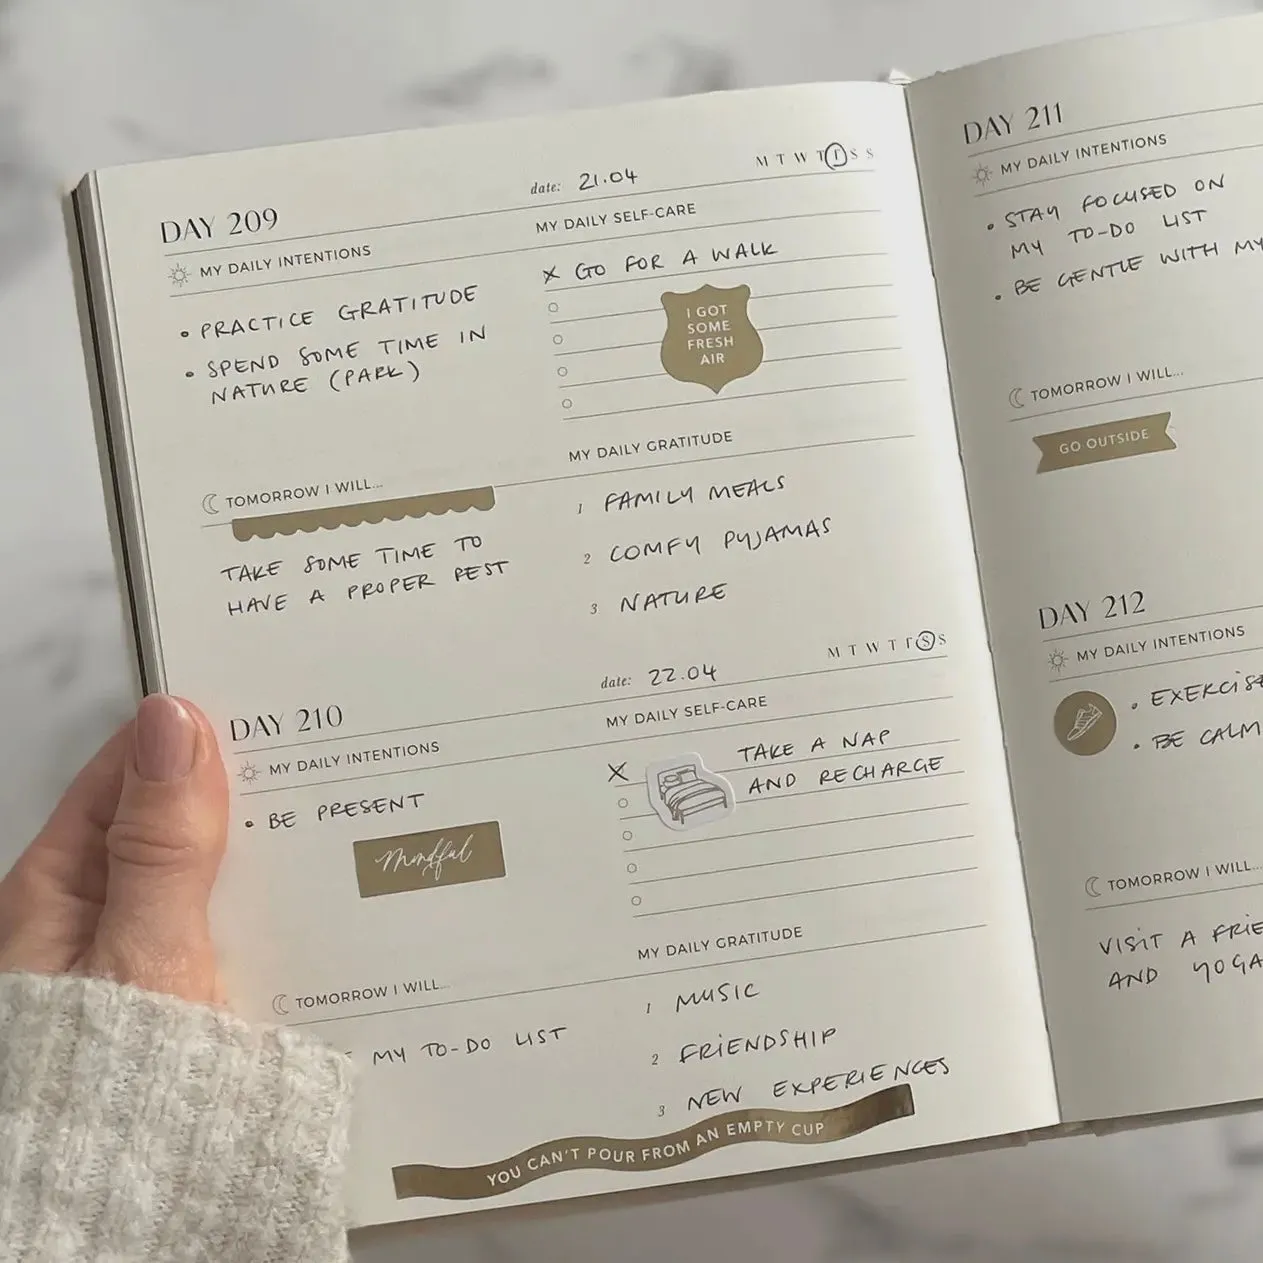 DAY 209
date: 21.04
M T W T F S S
MY DAILY INTENTIONS
• PRACTICE GRATITUDE
• SPEND SOME TIME IN
NATURE (PARK)
MY DAILY SELF-CARE
X GO FOR A WALK
I GOT
SOME
FRESH
AIR
TOMORROW I WILL...
TAKE SOME TIME TO
HAVE A PROPER REST
MY DAILY GRATITUDE
1 FAMILY MEALS
2 COMFY PYJAMAS
3 NATURE
DAY 210
date: 22.04
M T W T F S S
MY DAILY INTENTIONS
• BE PRESENT
Mindful
MY DAILY SELF-CARE
X TAKE A NAP
AND RECHARGE
TOMORROW I WILL...
MY TO-DO LIST
MY DAILY GRATITUDE
1 MUSIC
2 FRIENDSHIP
3 NEW EXPERIENCES
YOU CAN'T POUR FROM AN EMPTY CUP
DAY 211
MY DAILY INTENTIONS
• STAY FOCUSED ON
MY TO-DO LIST
• BE GENTLE WITH MY
TOMORROW I WILL...
GO OUTSIDE
DAY 212
MY DAILY INTENTIONS
• EXERCISE
• BE CALM
TOMORROW I WILL...
VISIT A FRIE
AND YOGA